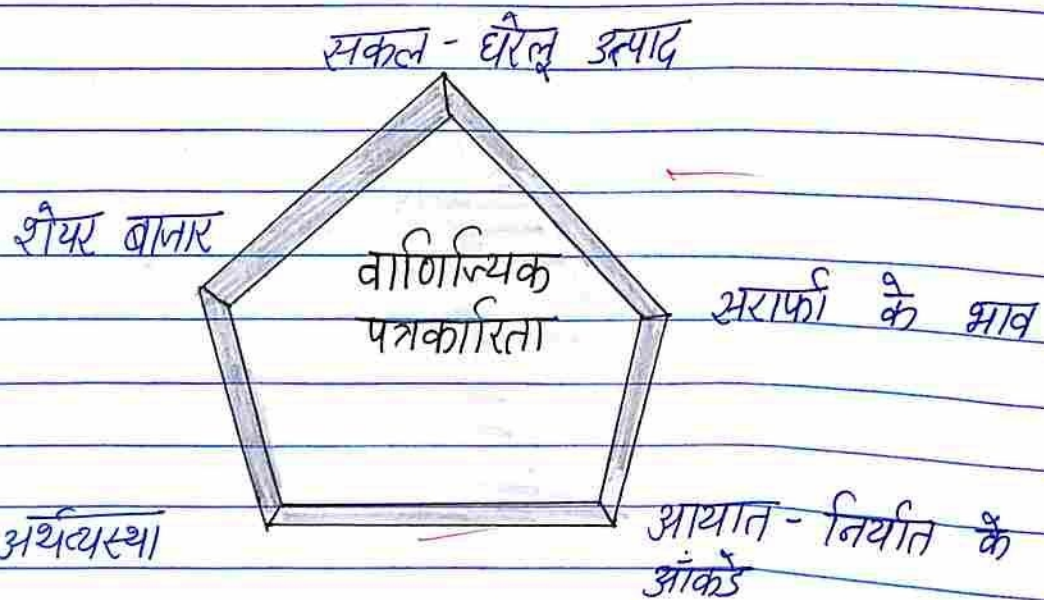 सकल - घरेलू उत्पाद
शेयर बाजार
वाणिज्यिक
पत्रकारिता
सर्राफा के भाव
अर्थव्यस्था
आयात - निर्यात के
आंकडे